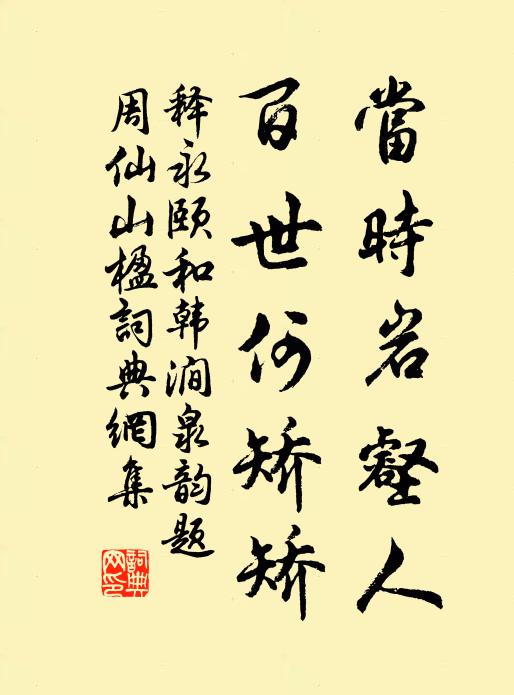 當時岩壑人
百世何矯矯
释永颐和韩涧泉韵题
周仙山楹詞典網集
詞典网印